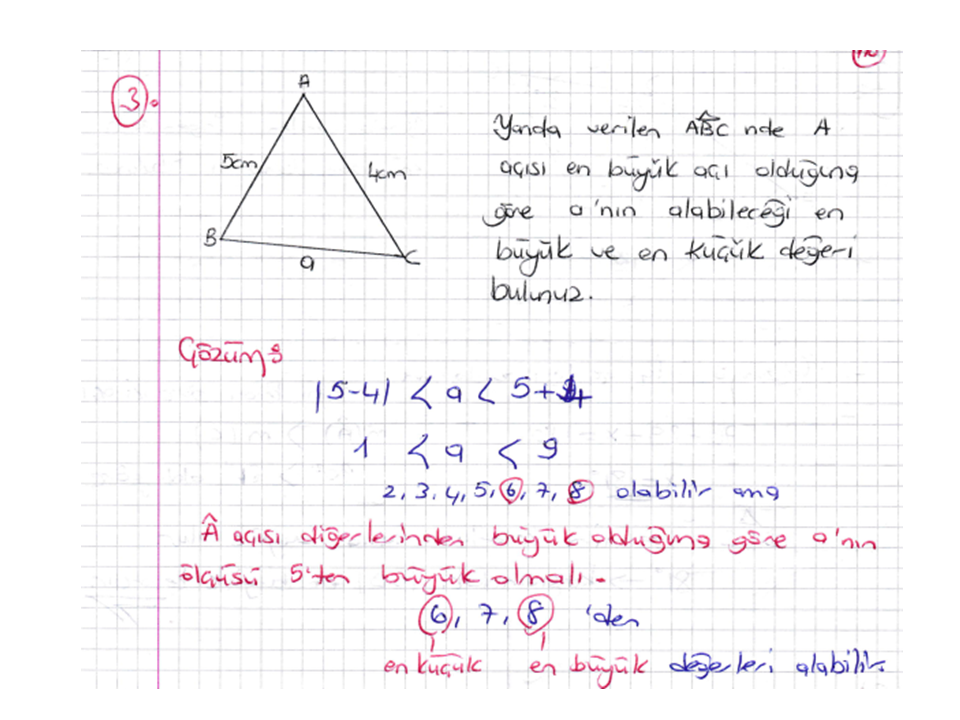 3.
A
5cm
4cm
B
C
a
Yanda verilen ABC nde A
açısı en büyük açı olduğuna
göre a'nın alabileceği en
büyük ve en küçük değeri
bulunuz.
Çözüm:
|5-4| < a < 5+4
1 < a < 9
2, 3, 4, 5, 6, 7, 8 olabilir ama
Â açısı diğerlerinden büyük olduğuna göre a'nın
ölçüsü 5'ten büyük olmalı.
6, 7, 8 'den
en küçük en büyük değerleri alabilir.